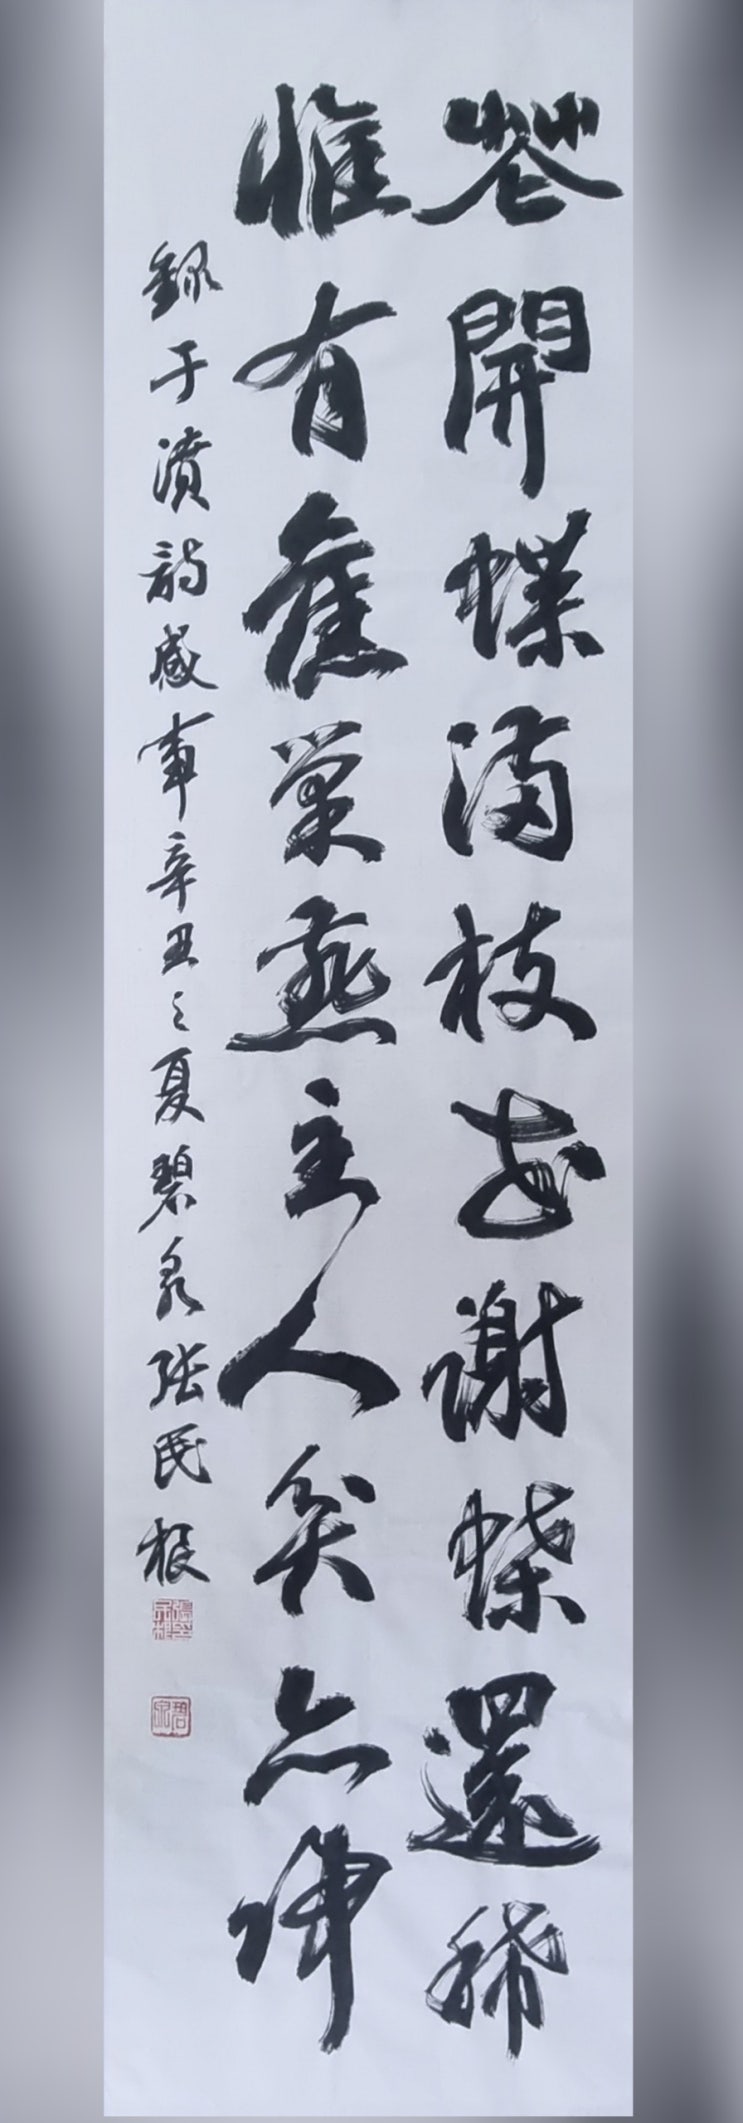 花開蝶滿枝花謝蝶還稀
惟有舊巢燕主人貧亦歸
錄于濆詩感事辛丑之夏碧泉張民根
碧泉